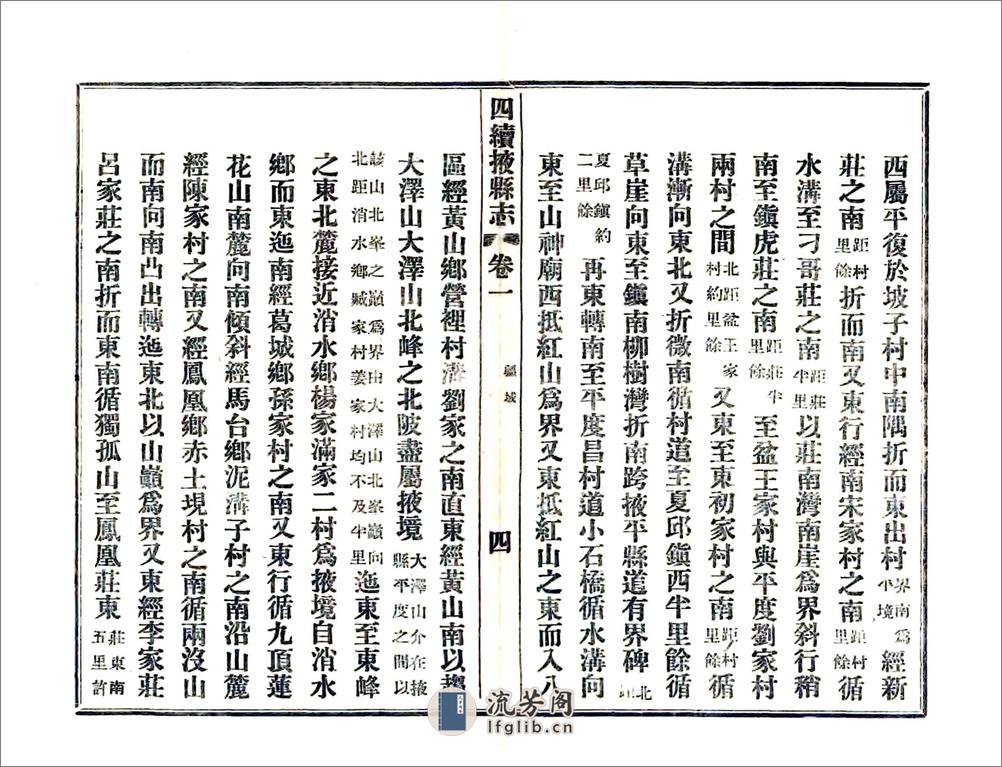 西屬平復於坡子村中南隅折而東出村界南為平境經新
莊之南距村里餘折而南又東行經南宋家村之南距村里餘循
水溝至刁哥莊之南距莊半里以莊南灣南崖爲界斜行稍
南至鎭虎莊之南距莊半里餘至盆王家村與平度劉家村
兩村之間北距盆王家村約里餘又東至東初家村之南距村里餘循
溝漸向東北又折微南循村道至夏邱鎭西半里餘循
草崖向東至鎭南柳樹灣折南跨掖平縣道有界碑北距
夏邱鎭約二里餘再東轉南至平度昌村道小石橋循水溝向
東至山神廟西抵紅山爲界又東抵紅山之東而入八
四續掖縣志 卷一 疆域 四
區經黃山鄉營裡村溝劉家之南直東經黃山南以趨
大澤山大澤山北峰之北陂盡屬掖境大澤山介在掖縣平度之間以
該山北峯之巔爲界由大澤山北峯巔向北距消水鄉臧家村姜家村均不及半里迤東至東峰
之東北麓接近消水鄉楊家滿家二村爲掖境自消水
鄉而東迤南經葛城鄉孫家村之南又東行循九頂蓮
花山南麓向南傾斜經馬台鄉泥溝子村之南沿山麓
經陳家村之南又經鳳凰鄉赤土現村之南循兩沒山
而南向南凸出轉迤東北以山巔爲界又東經李家莊
呂家莊之南折而東南循獨孤山至鳳凰莊東莊東南五里許
流芳阁
lfglib.cn